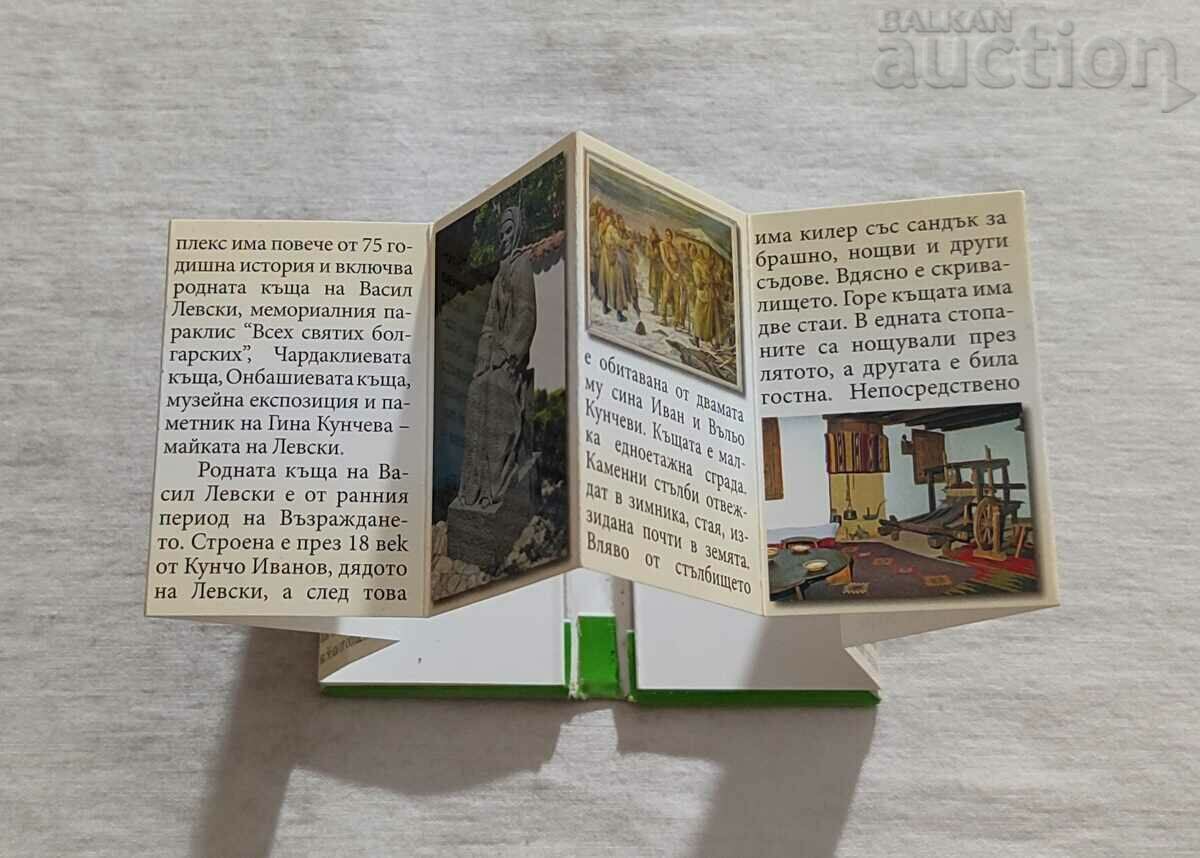 BALKAN
auction
плекс има повече от 75 го-
дишна история и включва
родната къща на Васил
Левски, мемориалния па-
раклис “Всех святих бол-
гарских”, Чардаклиевата
къща, Онбашиевата къща,
музейна експозиция и па-
метник на Гина Кунчева –
майката на Левски.
Родната къща на Ва-
сил Левски е от ранния
период на Възраждане-
то. Строена е през 18 век
от Кунчо Иванов, дядото
на Левски, а след това
е обитавана от двамата
му сина Иван и Въльо
Кунчеви. Къщата е мал-
ка едноетажна сграда.
Каменни стълби отвеж-
дат в зимника, стая, из-
зидана почти в земята.
Вляво от стълбището
има килер със сандък за
брашно, нощви и други
съдове. Вдясно е скрива-
лището. Горе къщата има
две стаи. В едната стопа-
ните са нощували през
лятото, а другата е била
гостна. Непосредствено